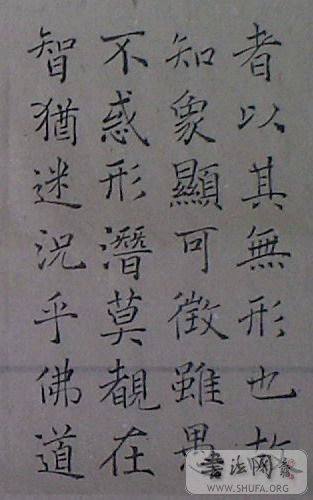 者以其無形也故
知象顯可徵雖愚
不惑形潛莫覩在
智猶迷況乎佛道
書法网
WWW.SHUFA.ORG